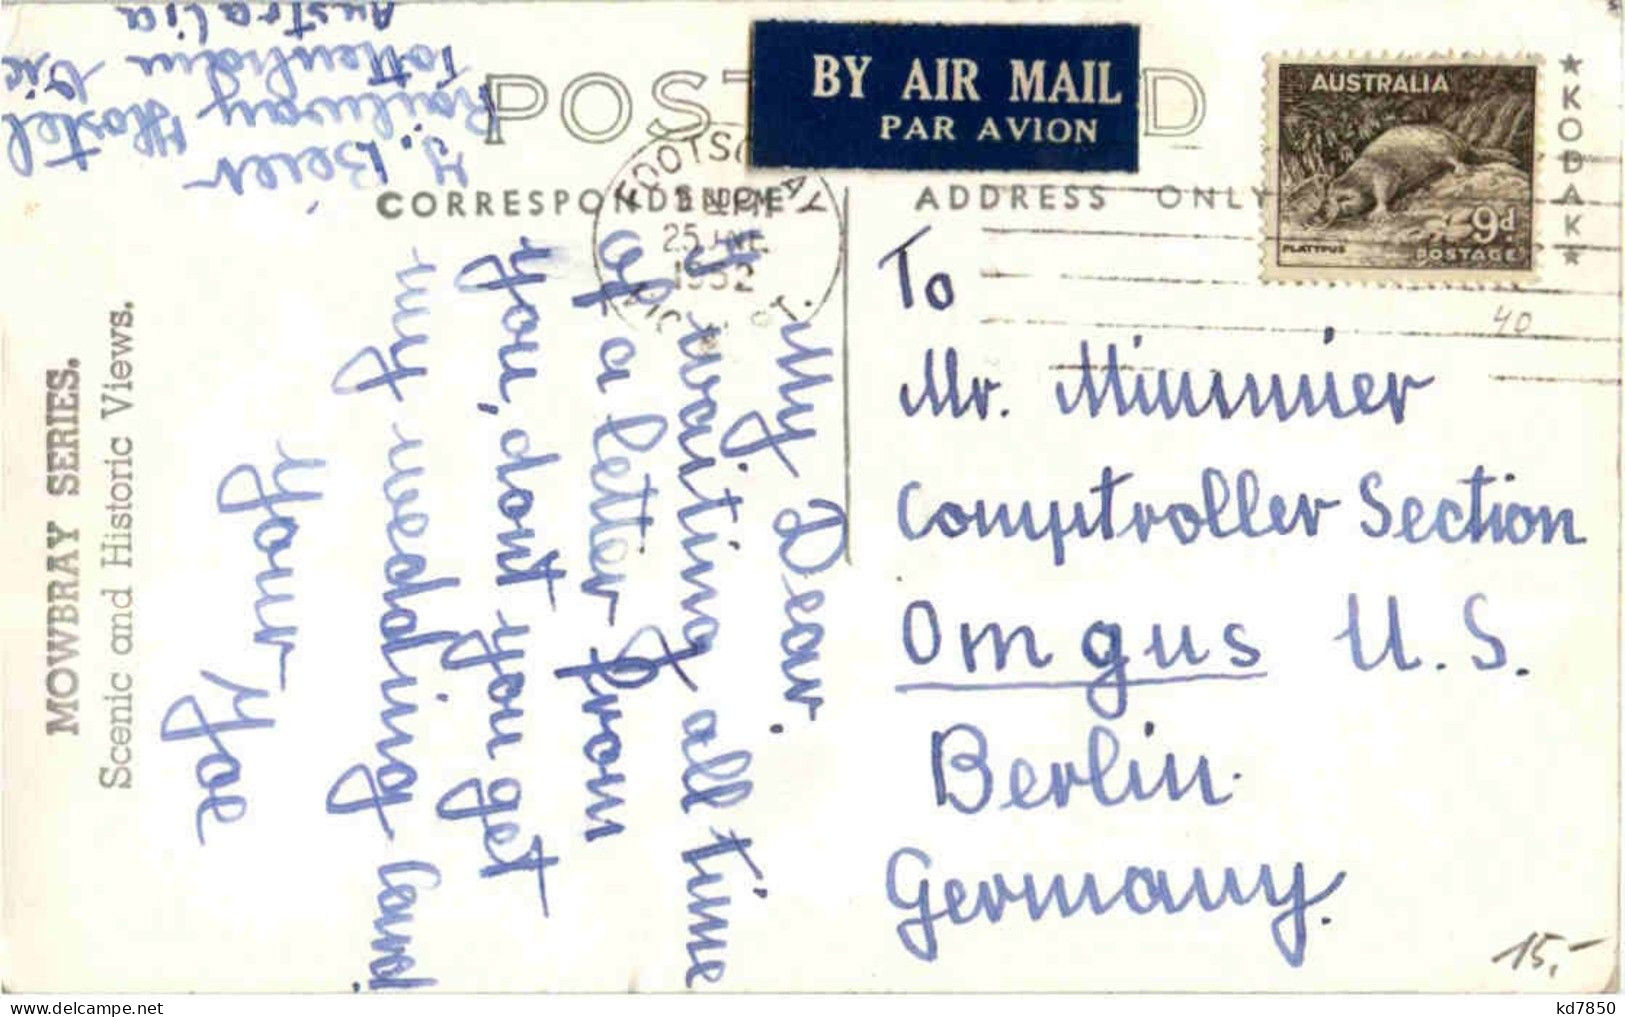 J. Beier
Railway Hostel
Tottenham Vic
Australia
POST D
BY AIR MAIL
PAR AVION
CORRESPONDENCE
ADDRESS ONLY
★KODAK★
AUSTRALIA
PLATYPUS
9d
POSTAGE
FOOTSC AY
PM
25 JNE
1952
VIC
My Dear,
I waiting all time
of a letter from
you, dont you get
my wedding Card
Your Joe
To
Mr. Mimmier
Comptroller Section
Omgus U.S.
Berlin
Germany.
MOWBRAY SERIES.
Scenic and Historic Views.
40
15,-
www.delcampe.net
kd7850